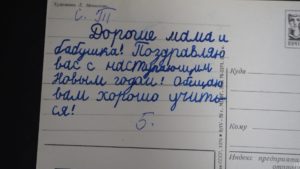 Художник Л.
С. III
Дорогие мама и
бабушка! Поздравляю
вас с наступающим
Новым годом! Обещаю
вам хорошо учить-
ся!
Б.
Куда
Кому
Индекс предприятия